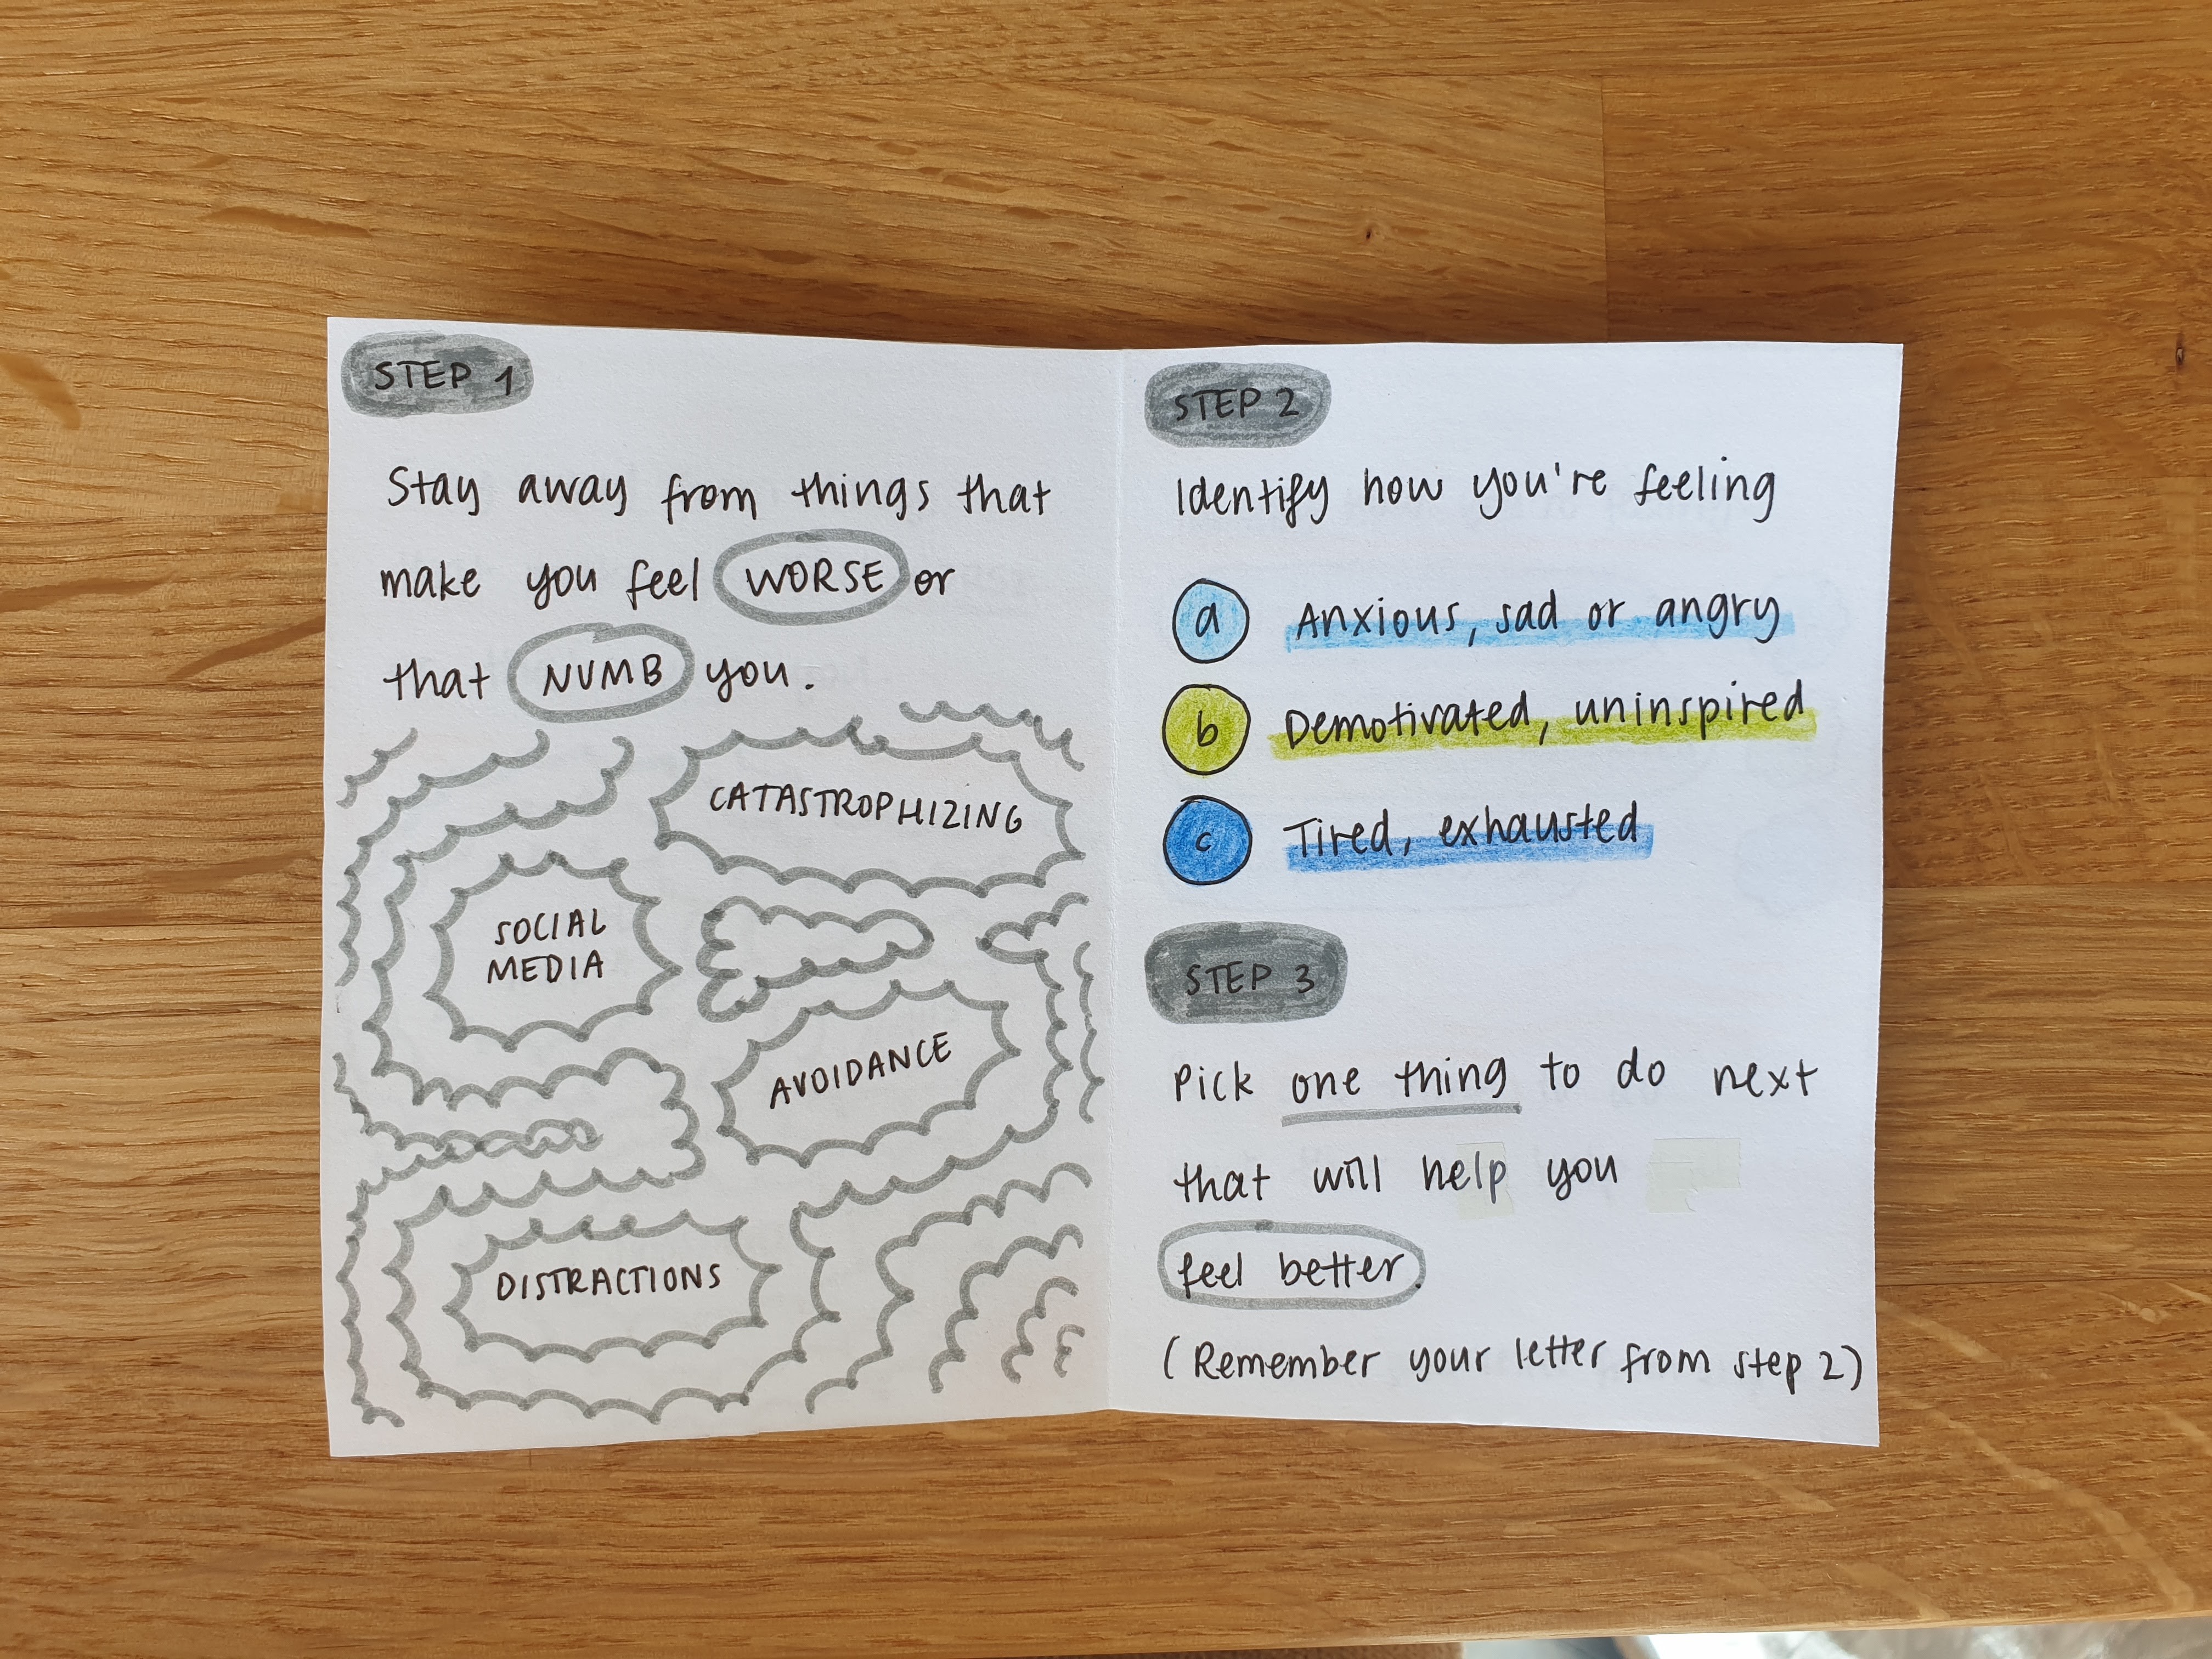 STEP 1
Stay away from things that
make you feel WORSE or
that NUMB you.
CATASTROPHIZING
SOCIAL
MEDIA
AVOIDANCE
DISTRACTIONS
STEP 2
Identify how you're feeling
a Anxious, sad or angry
b Demotivated, uninspired
c Tired, exhausted
STEP 3
Pick one thing to do next
that will help you
feel better.
(Remember your letter from step 2)